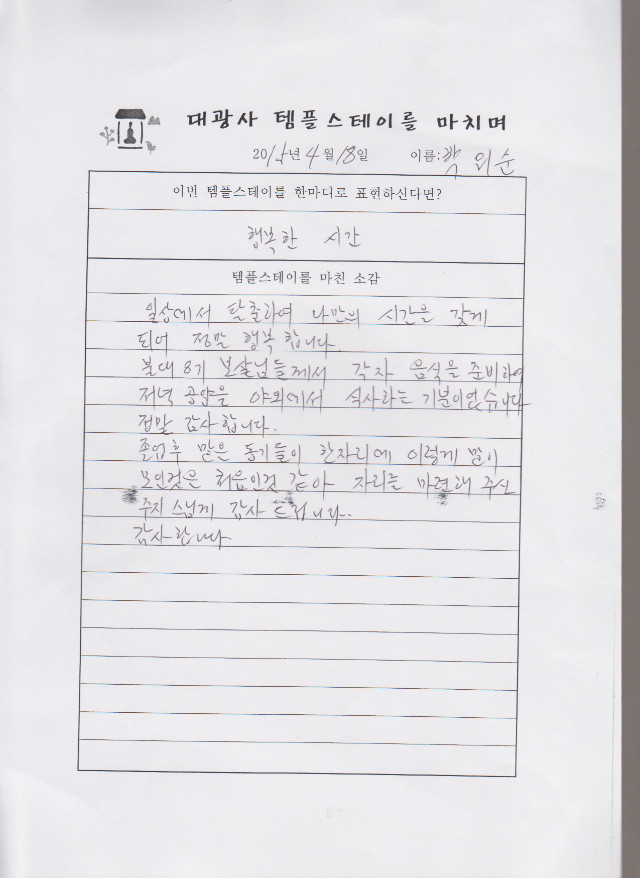 대광사 템플스테이를 마치며
2015년 4월 18일 이름: 백 외순
이번 템플스테이를 한마디로 표현하신다면?
행복한 시간
템플스테이를 마친 소감
일상에서 탈출하여 나만의 시간을 갖게
되어 정말 행복합니다.
불대 8기 보살님들께서 각자 음식을 준비하여
저녁 공양은 야외에서 식사하는 기분이었습니다
정말 감사합니다.
졸업후 많은 동기들이 한자리에 이렇게 많이
모인것은 처음인것 같아 자리를 마련해 주신
주지스님께 감사 드립니다.
감사합니다